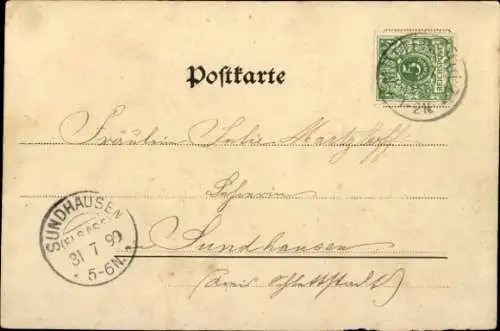 Postkarte
5
REICHSPOST
Fräulein Julie Martzloff
Lehrerin
in Sundhausen
(Kreis Schlettstadt)
SUNDHAUSEN
(ELSASS)
31 7 99
5-6N.